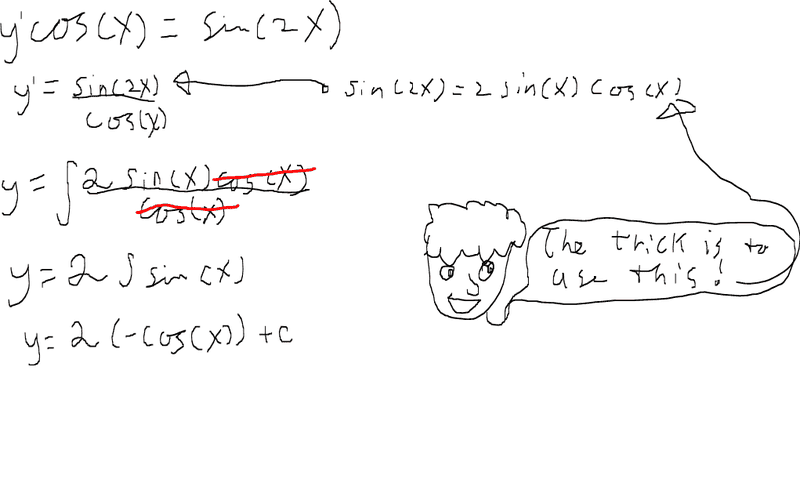 y'cos(x) = sin(2x)
y' = sin(2x)/cos(x)
sin(2x) = 2 sin(x) cos(x)
y = ∫ 2 sin(x) cos(x)/cos(x)
The trick is to
use this!
y = 2 ∫ sin(x)
y = 2 (-cos(x)) + c